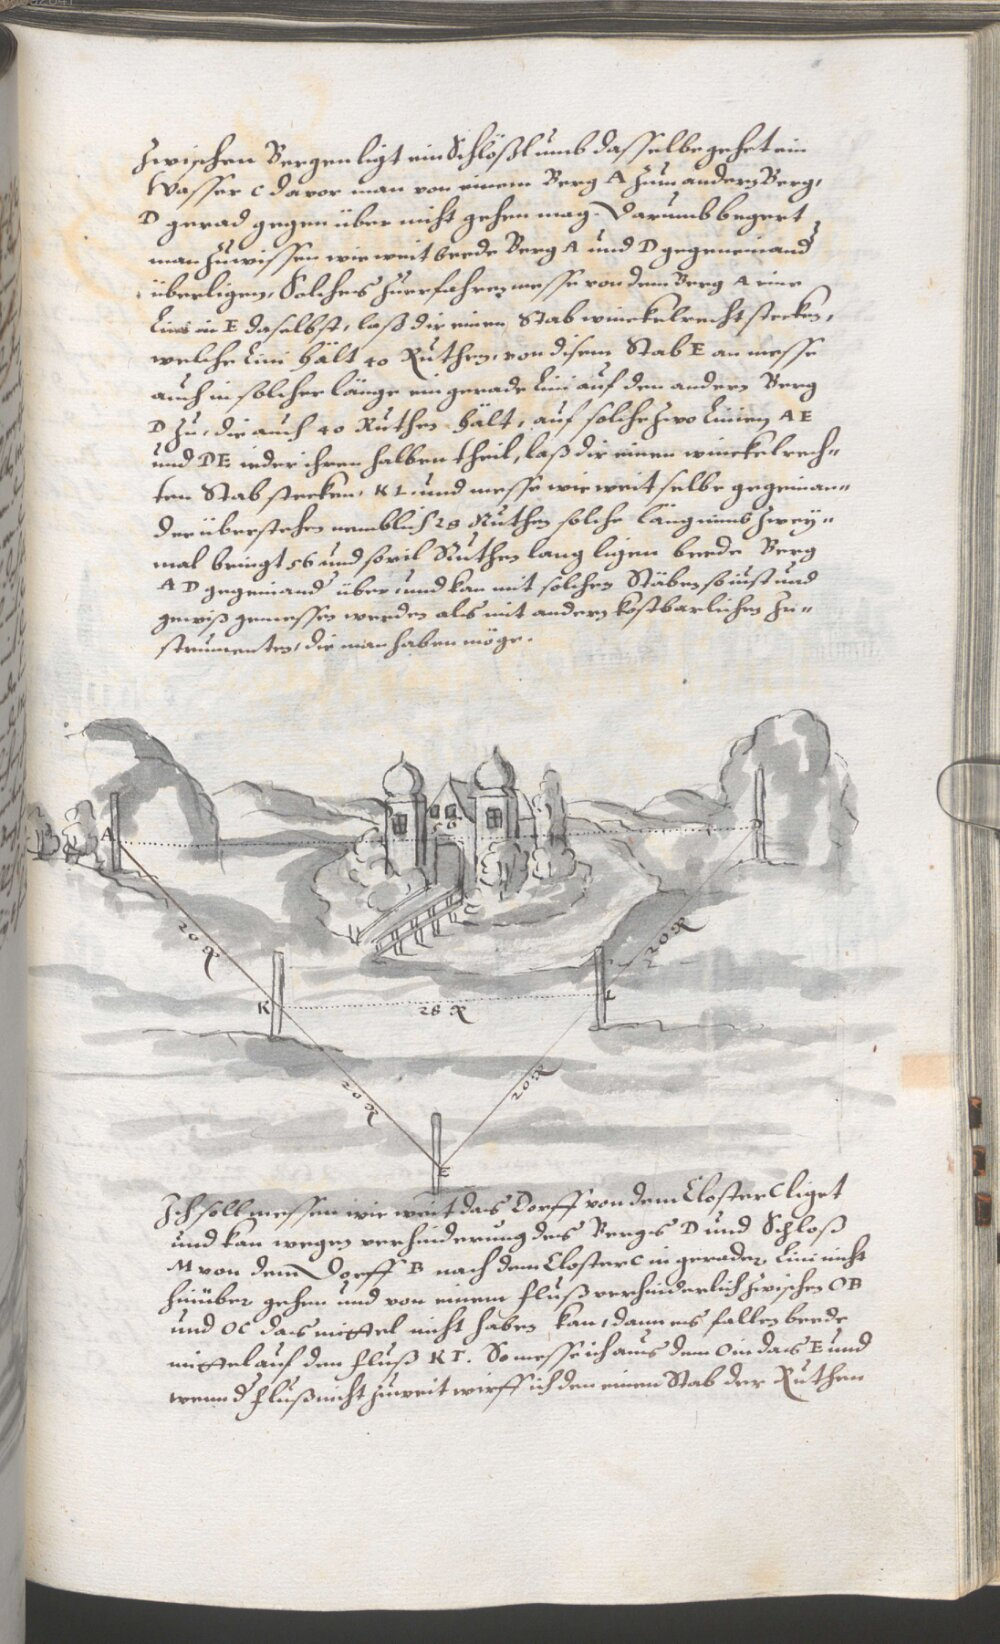 Zwischen Bergen ligt ein Schlößl umb dasselbe gehet ein
Wasser C davor man von einem Berg A zum andern Berg,
D gerad gegen über nicht gehen mag. Darumb begert
man zuwissen wie weit beede Berg A und D gegeneinand
überligen. Solches zuerfahren messe von dem Berg A eine
Lini in E daselbst, laß dir einen Stab winckelrecht stecken,
welche Lini hält 40 Ruthen, von disem Stab E an messe
auch in solcher länge ein gerade Lini auf den andern Berg
D zu, die auch 40 Ruthen hält, auf solche zwo Linien A E
und D E ieder ihren halben theil, laß dir einen winckelrech-
ten Stab stecken, K L. und messe wie weit selbe gegeinan-
der überstehen nemblich 28 Ruthen solche läng nimb zwey-
mal bringt 56 und sovil Ruthen lang ligen beede Berg
A D gegeinand über, und kan mit solchen Stäben so iust und
gewiß gemessen werden als mit andern kostbarlichen In-
strumenten, die man haben möge.
A
56
D
20 R
20 R
K
28 R
L
20 R
20 R
E
Ich soll messen wie weit das Dorff von dem Closter C liget
und kan wegen verhinderung des Bergs D und Schloß
M von dem Dorff B nach dem Closter C in gerader Lini nicht
hinüber gehen und von einem fluß verhinderlich zwischen O B
und O C das mittel nicht haben kan, dann es fallen beede
mittel auf den fluß K I. So messe ich aus dem O in das E und
wenn d' fluß nicht zu weit wirff ich den einen Stab der Ruthen